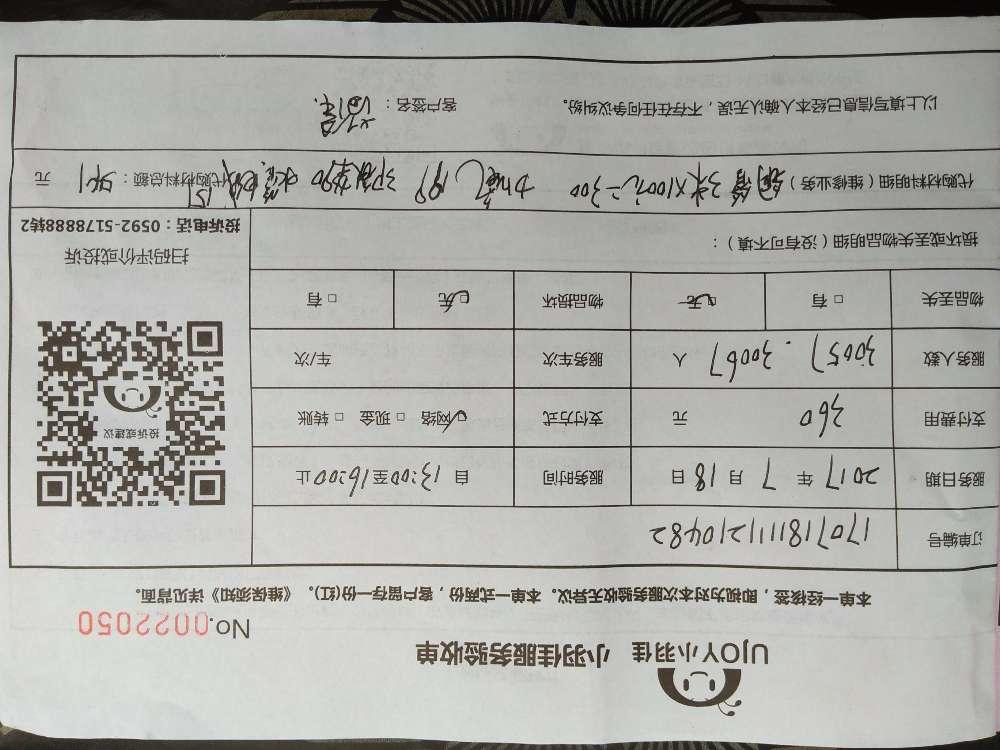 UJOY小羽佳 小羽佳服务验收单
No.0022050
本单一经核签，即视为对本次服务验收无异议。本单一式两份，客户留存一份(红)。《维保须知》详见背面。
订单编号 170718111210482
服务日期 2017年7月18日 服务时间 自13:00至16:00止
支付费用 360元 支付方式 网络 □现金 □转账
服务人数 30057.30067人 服务车次 车/次
物品丢失 □有 □无 物品损坏 □无 □有
损坏或丢失物品明细（没有可不填）：
投诉或建议
扫码评价或投诉
投诉电话：0592-5178888转2
代购材料明细（维修业务） 铜管3米×100元=300 加氟 代购材料总额： 元
以上填写信息已经本人确认无误，不存在任何争议纠纷。 客户签名：